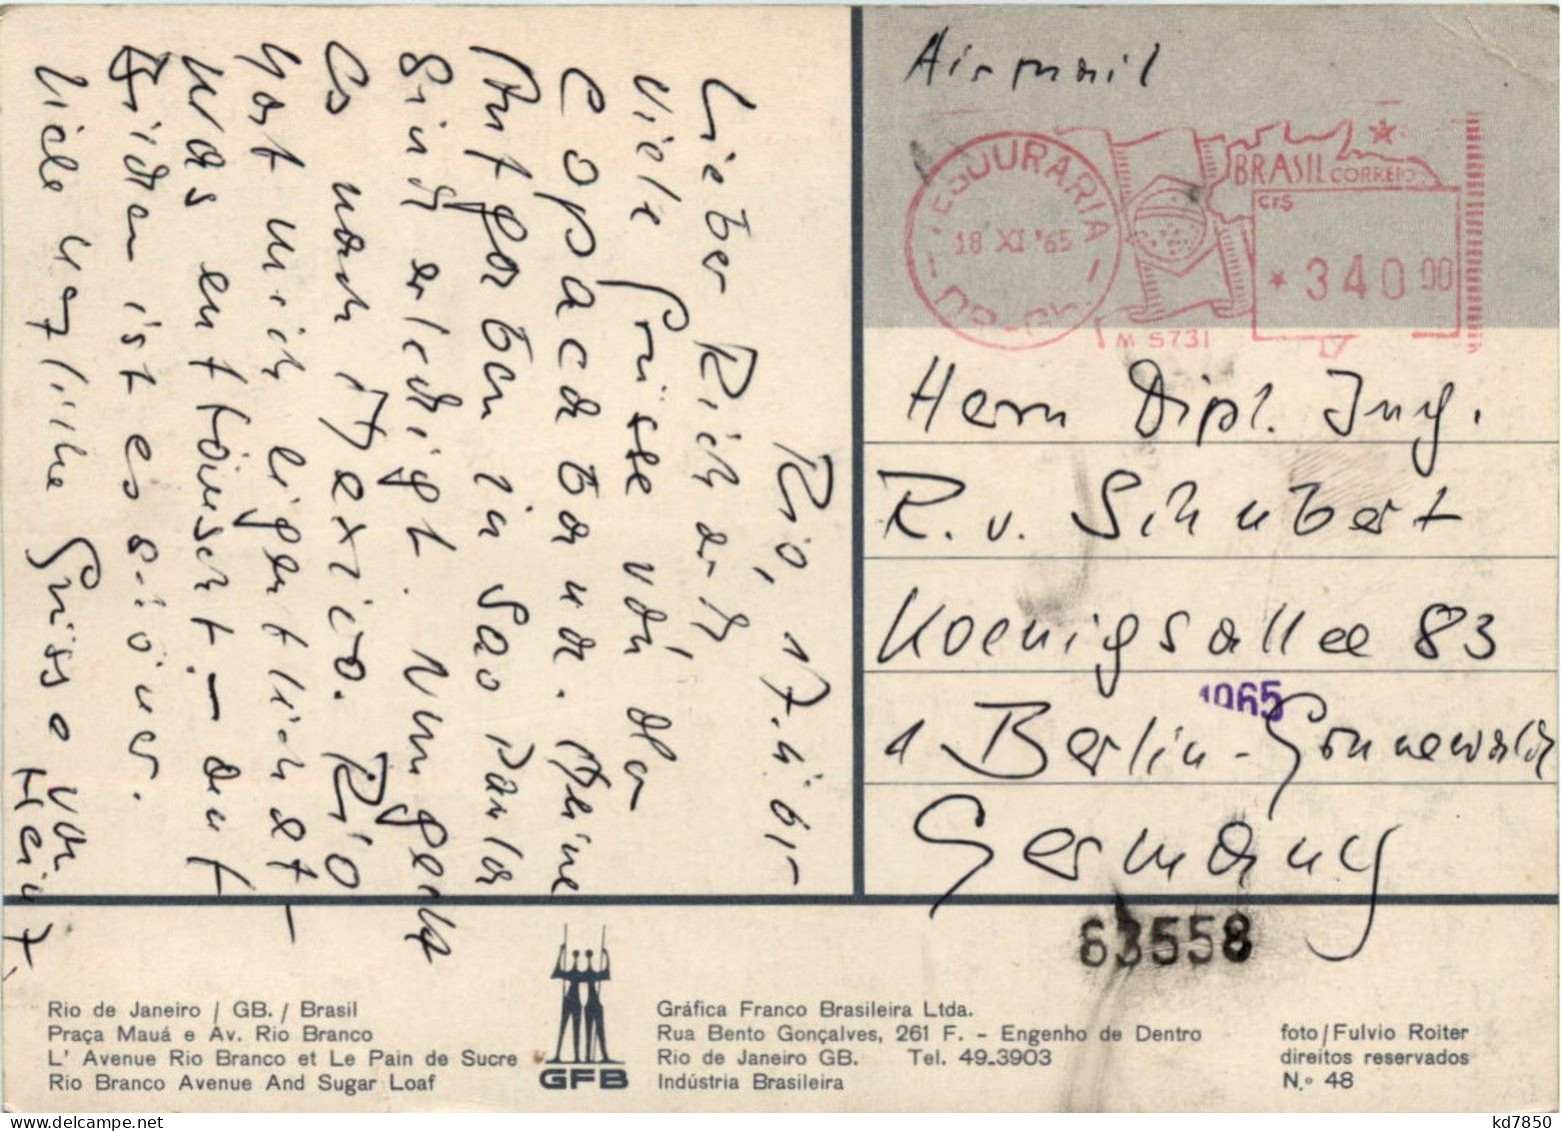 Rio, 17.4.65
Lieber Richard,
Viele Grüsse von der
Copacabana. Meine
Aufgaben in Sao Paulo
sind erledigt. Nun geht
es nach Mexico. Rio
hat mich eigentlich et-
was enttäuscht - auf
Bildern ist es schöner.
Viele herzliche Grüsse von
Heinz
Airmail
TESOURARIA
18 XI '65
BRASIL CORREIO
Cr$
*34000
M 5731
Herrn Dipl. Ing.
R. v. Schubert
Koenigsallee 83
1965
1 Berlin-Grunewald
Germany
63558
Rio de Janeiro / GB. / Brasil
Praça Mauá e Av. Rio Branco
L' Avenue Rio Branco et Le Pain de Sucre
Rio Branco Avenue And Sugar Loaf
GFB
Gráfica Franco Brasileira Ltda.
Rua Bento Gonçalves, 261 F. - Engenho de Dentro
Rio de Janeiro GB. Tel. 49-3903
Indústria Brasileira
foto/Fulvio Roiter
direitos reservados
N.º 48
kd7850